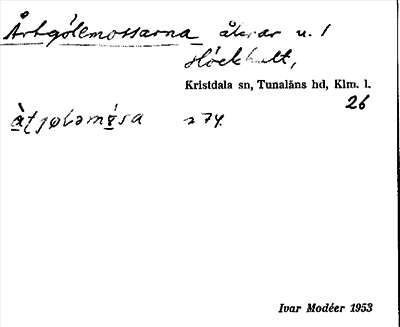 Årtgölemossarna åkrar u. 1
Höckhult,
Kristdala sn, Tunaläns hd, Klm. l.
26
s 74.
Ivar Modéer 1953